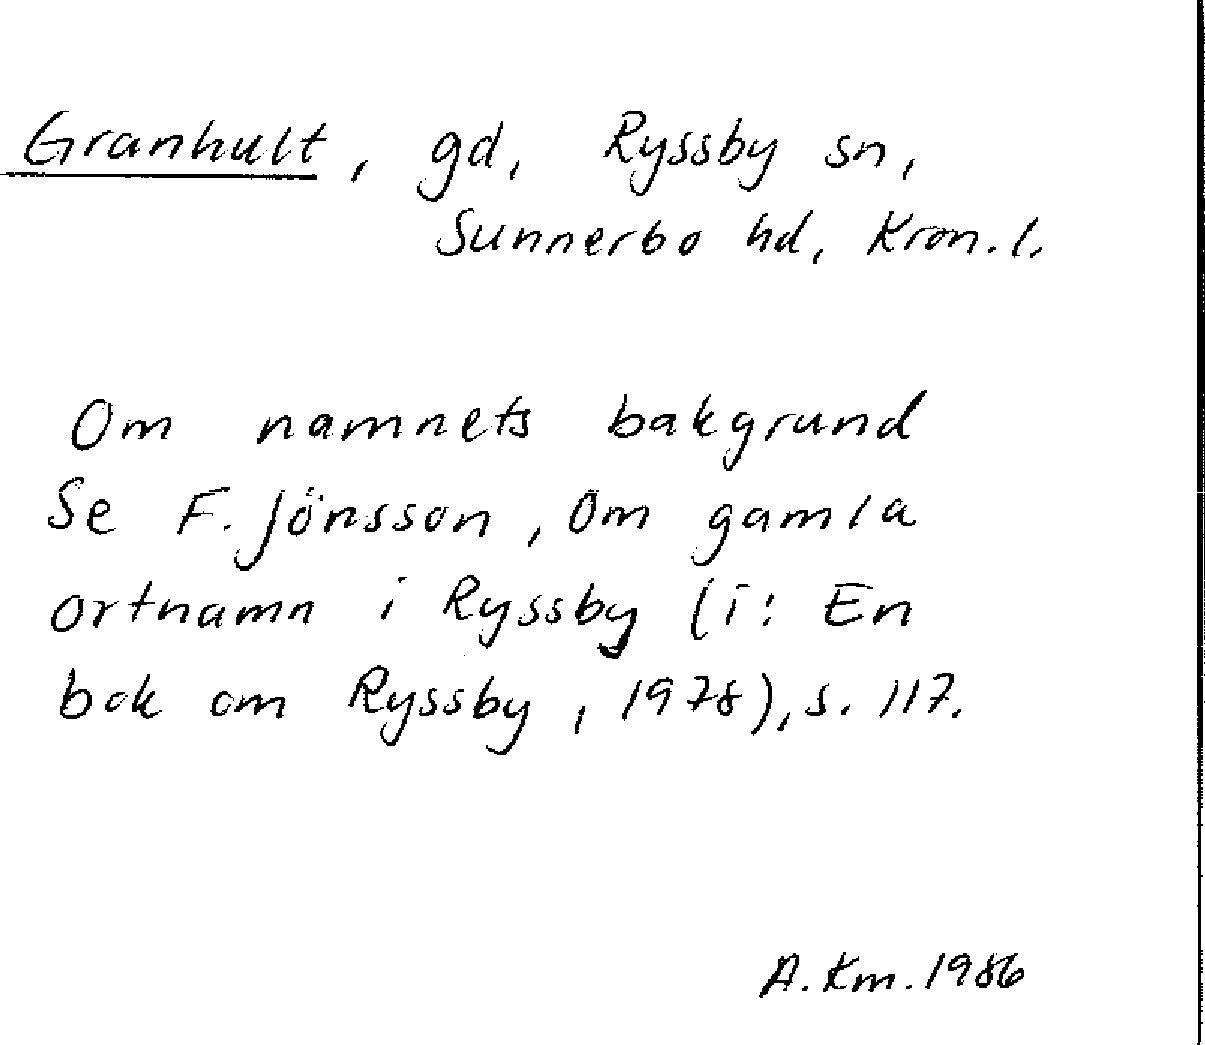 Granhult, gd, Ryssby sn,
Sunnerbo hd, Kron. l.
Om namnets bakgrund
Se F. Jönsson, Om gamla
ortnamn i Ryssby (i: En
bok om Ryssby, 1978), s. 117.
A. Km. 1986